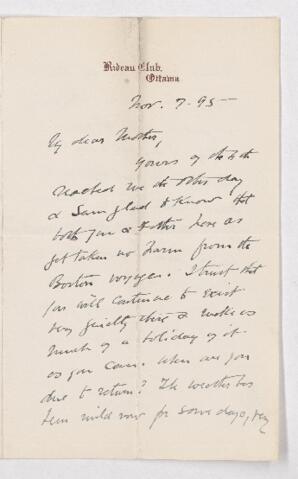 Rideau Club,
Ottawa
Nov. 7 - 95 -
My dear Mother,
Yours of the 4th
reached me this day
& I am glad to know that
both you & Father have as
yet taken no harm from the
Boston voyage. I trust that
you will continue to exist
very quietly there & make as
much of a holiday of it
as you can. When are you
due to return? The weather has
been mild now for some days, very